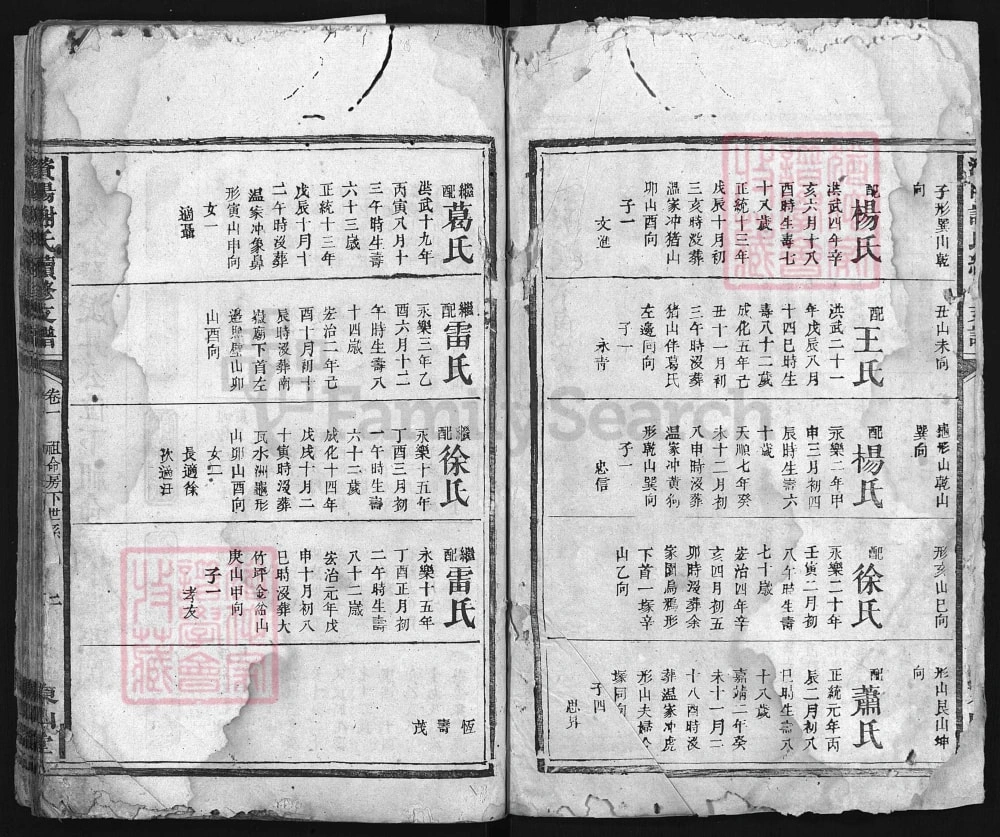 子形巽山乾
向
配楊氏
洪武四年辛
亥六月十八
酉時生壽七
十八歲
正統十三年
戊辰十月初
三亥時歿葬
溫家冲猪山
卯山酉向
子一
文進
丑山未向
配王氏
洪武二十一
年戊辰八月
十四巳時生
壽八十二歲
成化五年己
丑十一月初
三午時歿葬
猪山伴葛氏
左邊同向
子一
永青
形乾山
巽向
配楊氏
永樂二年甲
申三月初四
辰時生壽六
十歲
天順七年癸
未十二月初
八申時歿葬
溫家冲黃狗
形乾山巽向
子一
忠信
形亥山巳向
配徐氏
永樂二十年
壬寅二月初
八午時生壽
七十歲
宏治四年辛
亥四月初五
卯時歿葬余
家園烏鴉形
下首一塚辛
山乙向
形山艮山坤
向
配蕭氏
正統元年丙
辰二月初八
巳時生壽八
十八歲
嘉靖二年癸
未十一月二
十八酉時歿
葬溫家冲虎
形山夫婦合
塚同向
子四
思昇
繼配葛氏
洪武十九年
丙寅八月十
三午時生壽
六十三歲
正統十三年
戊辰十月十
二午時歿葬
溫家冲象鼻
形寅山申向
女一
適聶
繼配雷氏
永樂三年乙
酉六月十二
午時生壽八
十四歲
宏治二年己
酉十月初十
辰時歿葬南
嶽廟下首左
邊照壁山卯
山酉向
繼配徐氏
永樂十五年
丁酉三月初
一午時生壽
六十二歲
成化十四年
戊戌十月二
十寅時歿葬
瓦水洲龜形
山卯山酉向
女二
長適徐
次適汪
繼配雷氏
永樂十五年
丁酉正月初
二午時生壽
八十二歲
宏治元年戊
申十月初八
巳時歿葬大
竹坪金盆山
庚山甲向
子一
孝友
恆
壽
茂
資陽謝氏續修支譜
卷一
祖命房下世系
FamilySearch